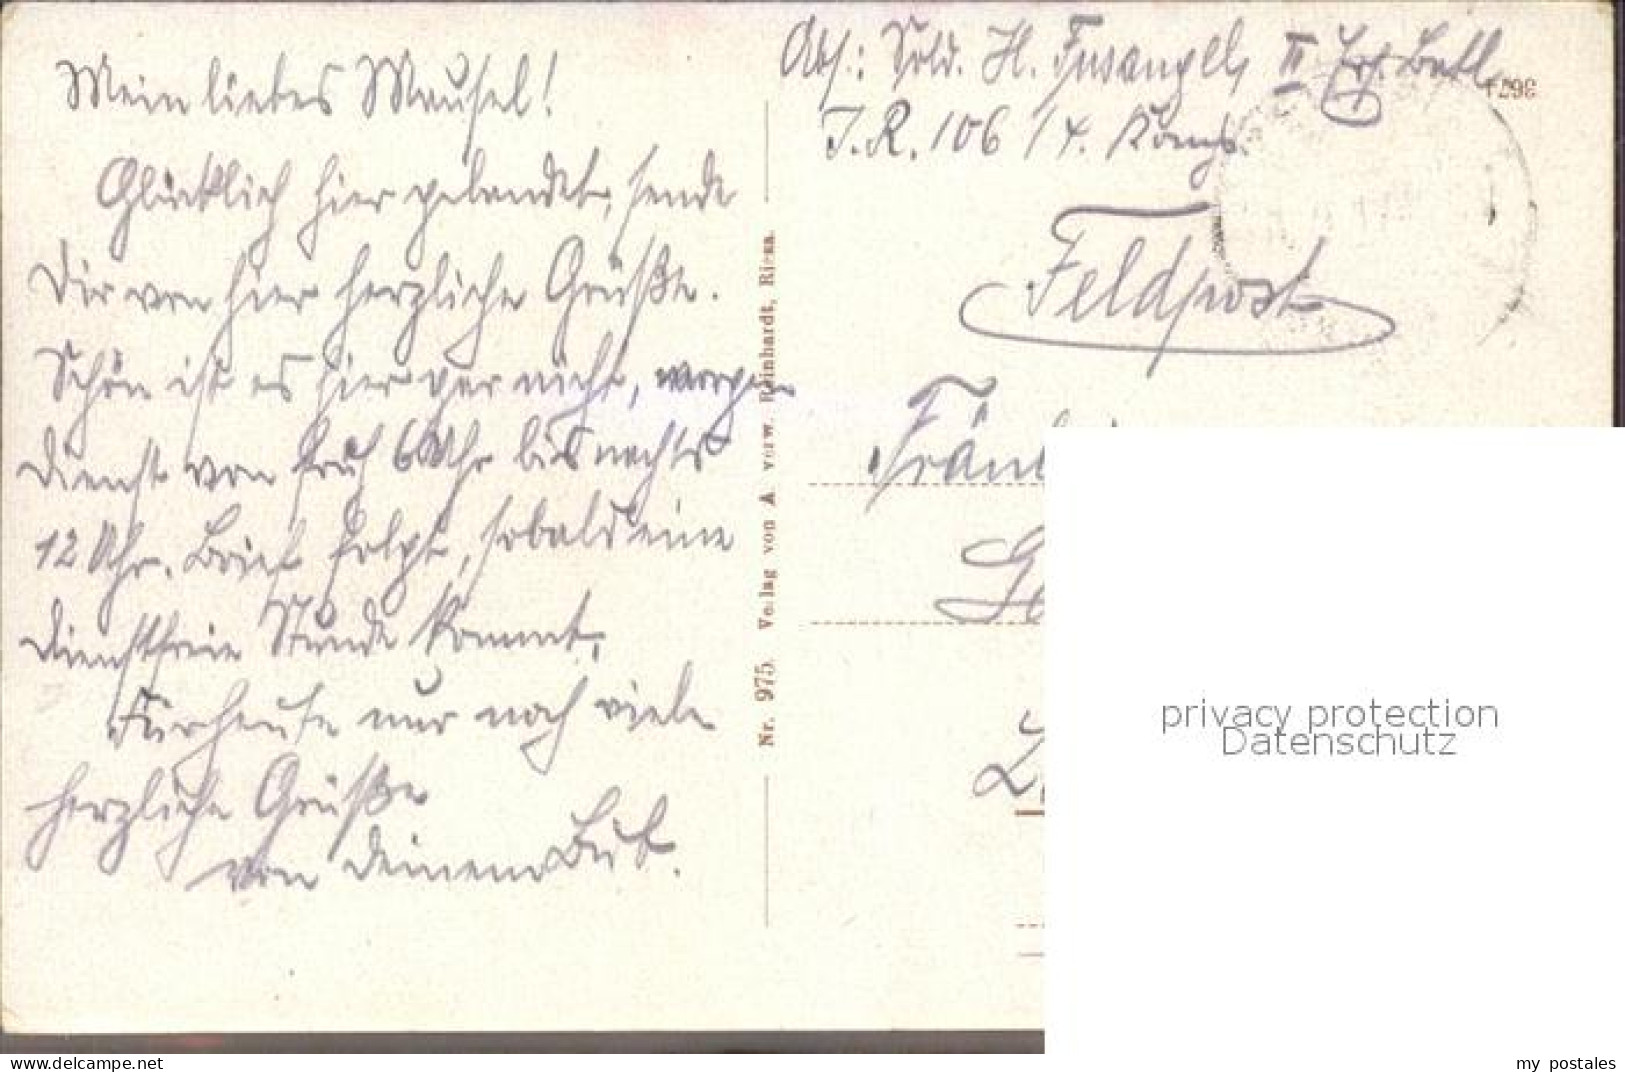 Mein liebes Mausel!
Glücklich hier gelandet, sende
Dir von hier herzliche Grüße.
Schön ist es hier gar nicht, morgen
Dienst von früh 6 Uhr bis nachts
12 Uhr. Brief folgt, sobald eine
dienstfreie Stunde kommt.
Für heute nur noch viele
herzliche Grüße
von deinem Bub.
Nr. 975. Verlag von A verw. Reinhardt, Riesa.
Abs.: Sold. H. Fusangel, II Ers. Batl.
J.R. 106 / 4. Komp.
Feldpost
privacy protection
Datenschutz
my postales